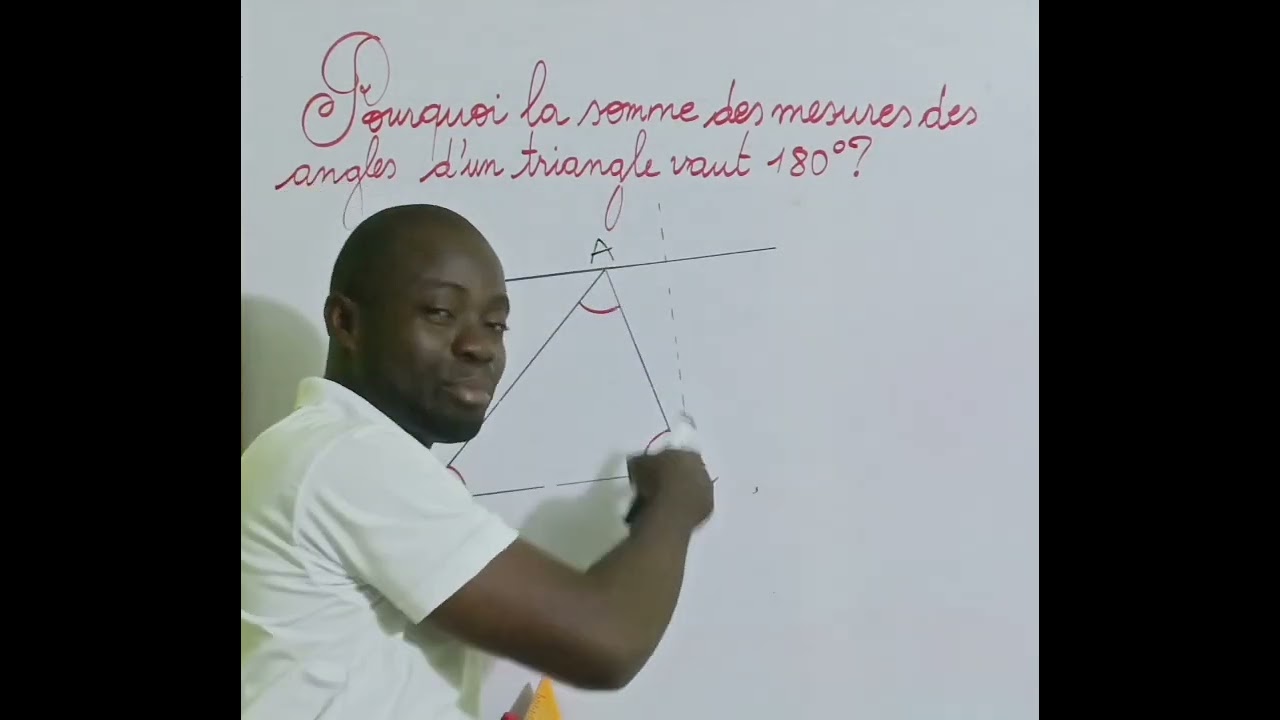 Pourquoi la somme des mesures des
angles d'un triangle vaut 180°?
A